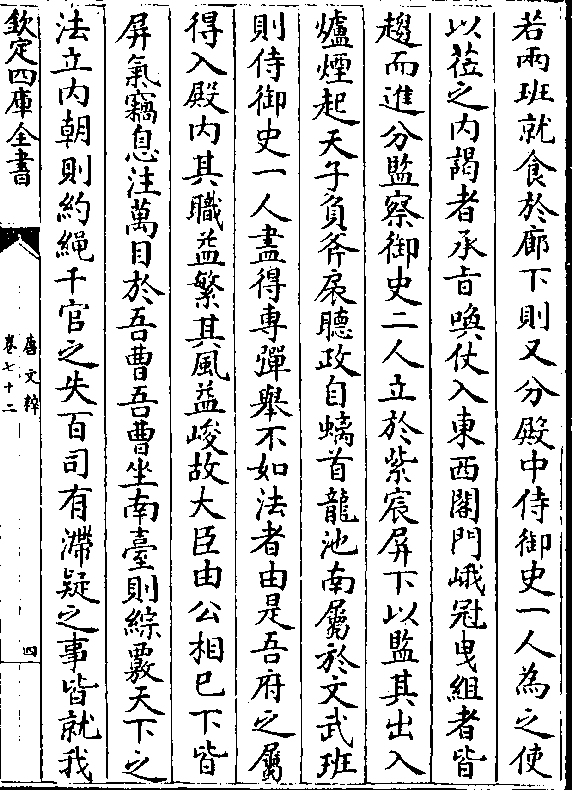 若兩班就食於廊下則又分殿中侍御史一人為之使
以蒞之内謁者承旨喚仗入東西閤門峨冠曳組者皆
趨而進分監察御史二人立於紫宸屏下以監其出入
爐煙起天子負斧扆聽政自螭首龍池南屬於文武班
則侍御史一人盡得專彈舉不如法者由是吾府之屬
得入殿内其職益繁其風益峻故大臣由公相已下皆
屏氣竊息注萬目於吾曹吾曹坐南臺則綜覈天下之
法立内朝則約繩千官之失百司有滯疑之事皆就我
欽定四庫全書
唐文粹
卷七十二
四